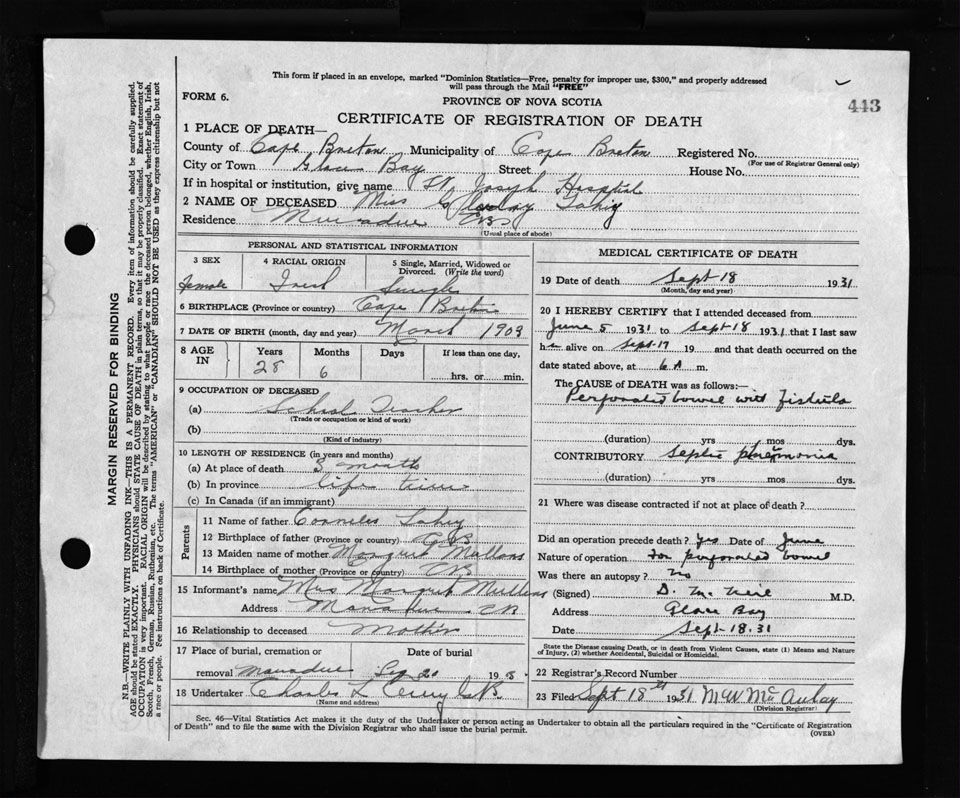 This form if placed in an envelope, marked "Dominion Statistics—Free, penalty for improper use, $300," and properly addressed
will pass through the Mail "FREE"
FORM 6.
PROVINCE OF NOVA SCOTIA
443
CERTIFICATE OF REGISTRATION OF DEATH
1 PLACE OF DEATH—
County of Cape Breton Municipality of Cape Breton Registered No.
(For use of Registrar General only)
City or Town Glace Bay Street House No.
If in hospital or institution, give name St. Joseph Hospital
2 NAME OF DECEASED Miss Lahey
Residence CB
(Usual place of abode)
PERSONAL AND STATISTICAL INFORMATION
3 SEX 4 RACIAL ORIGIN 5 Single, Married, Widowed or Divorced. (Write the word)
female Irish Single
6 BIRTHPLACE (Province or country) Cape Breton
7 DATE OF BIRTH (month, day and year) March 1903
8 AGE IN Years Months Days If less than one day,
28 6 hrs. or min.
9 OCCUPATION OF DECEASED
(a) School Teacher
(Trade or occupation or kind of work)
(b)
(Kind of industry)
10 LENGTH OF RESIDENCE (in years and months)
(a) At place of death 3 months
(b) In province life time
(c) In Canada (if an immigrant)
Parents
11 Name of father Cornelius Lahey
12 Birthplace of father (Province or country) CB
13 Maiden name of mother Margaret Mullins
14 Birthplace of mother (Province or country) CB
15 Informant's name Mrs Margaret Mullins
Address CB
16 Relationship to deceased Mother
17 Place of burial, cremation or removal Date of burial
Sep 20 19
18 Undertaker Charles L CB
(Name and address)
MEDICAL CERTIFICATE OF DEATH
19 Date of death Sept 18 1931
(Month, day and year)
20 I HEREBY CERTIFY that I attended deceased from
June 5 1931 to Sept 18 1931 that I last saw
her alive on Sept 17 19 and that death occurred on the
date stated above, at 6 A m.
The CAUSE OF DEATH was as follows:—
Perforated bowel with Fistula
(duration) yrs mos dys.
CONTRIBUTORY Septic pneumonia
(duration) yrs mos dys.
21 Where was disease contracted if not at place of death?
Did an operation precede death? Yes Date of June
Nature of operation For perforated bowel
Was there an autopsy? No
(Signed) D. McNeil M.D.
Address Glace Bay
Date Sept 18.31
State the Disease causing Death, or in death from Violent Causes, state (1) Means and Nature
of Injury, (2) whether Accidental, Suicidal or Homicidal.
22 Registrar's Record Number
23 Filed Sept 18th 1931 M W McAulay
(Division Registrar)
Sec. 46—Vital Statistics Act makes it the duty of the Undertaker or person acting as Undertaker to obtain all the particulars required in the "Certificate of Registration
of Death" and to file the same with the Division Registrar who shall issue the burial permit.
(OVER)
MARGIN RESERVED FOR BINDING
N.B.—WRITE PLAINLY WITH UNFADING INK—THIS IS A PERMANENT RECORD. Every item of information should be carefully supplied.
AGE should be stated EXACTLY. PHYSICIANS should STATE CAUSE OF DEATH in plain terms, so that it may be properly classified. Exact statement of
OCCUPATION is very important. RACIAL ORIGIN will be described by stating to what people or race the deceased person belonged, whether English, Irish,
Scotch, French, German, Russian, Ruthenian, etc. The terms "AMERICAN" or "CANADIAN" SHOULD NOT BE USED as they express citizenship but not
a race or people. Fee instructions on back of Certificate.